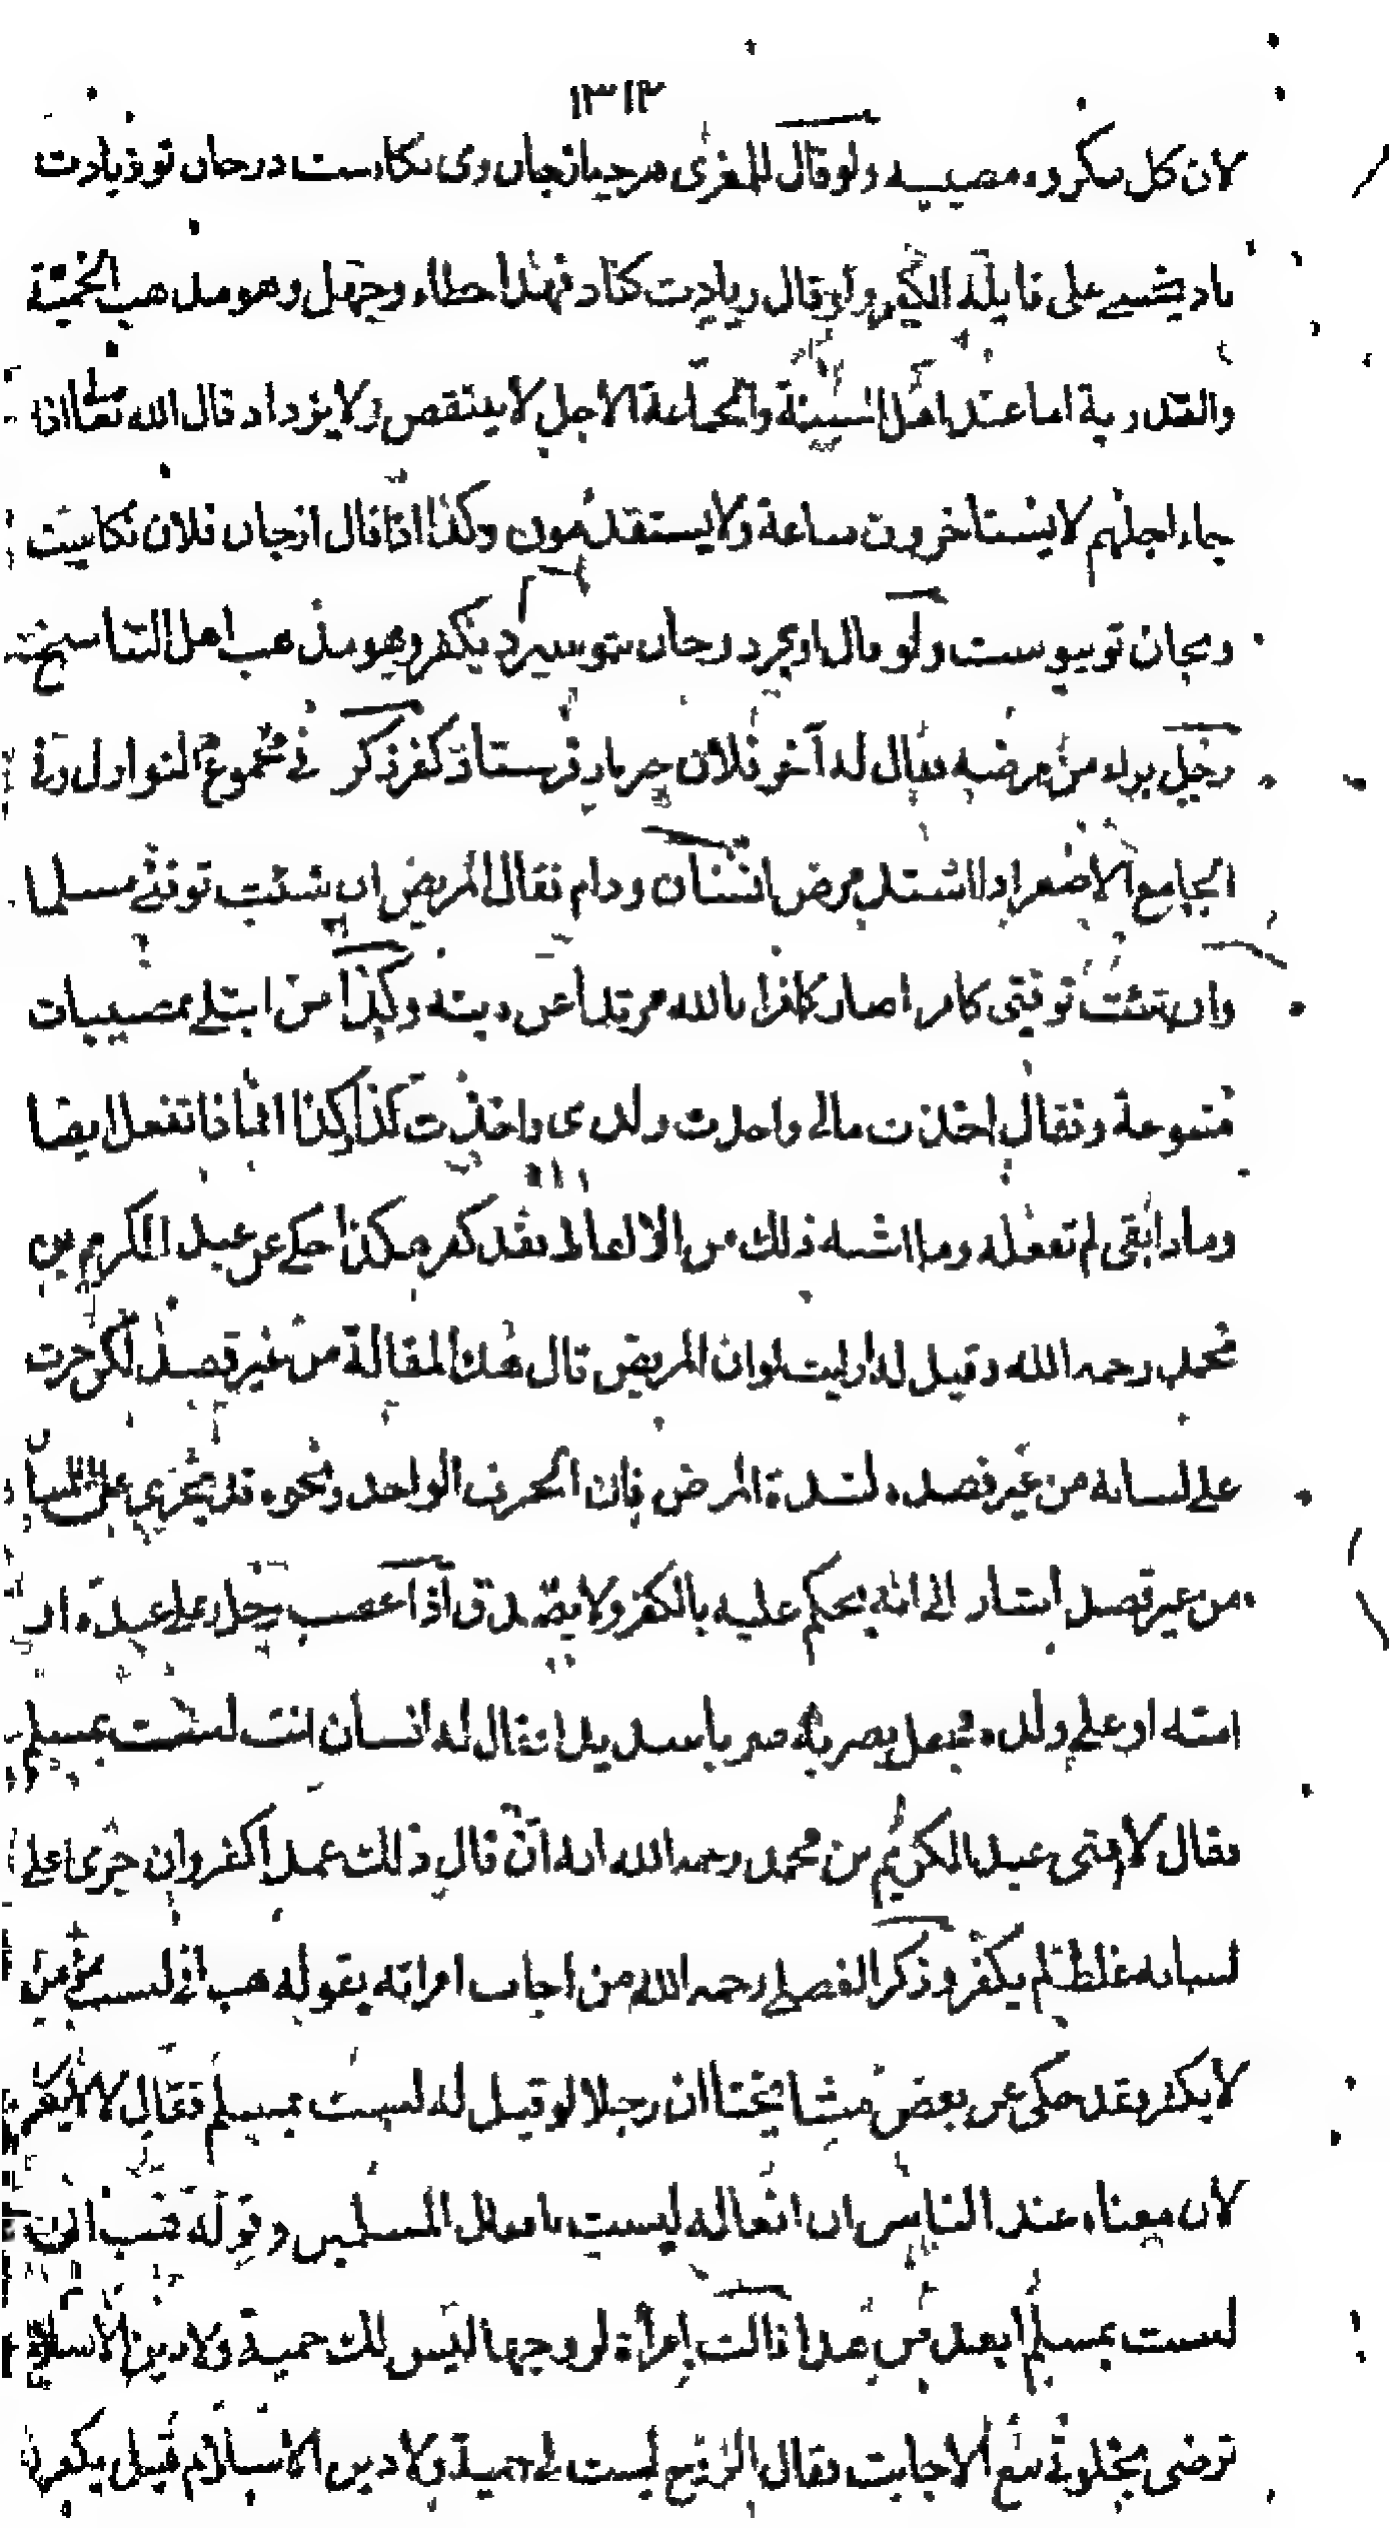 ١٣١٢
لان كل مكروه مصيبة ولو قال للمعزى هرچه از جان وى بكاست در جان تو زيادت
باد يخشى على قايله الكفر ولو قال زيادت كناد فهذا خطاء وجهل وهو مذهب
والقدرية اما عند اهل السنة والجماعة الاجل لا ينتقص ولا يزداد قال الله تعالى اذا
جاء اجلهم لا يستاخرون ساعة ولا يستقدمون وكذا اذا قال از جان فلان بكاست
وبجان تو پيوست ولو قال او بمرد وجان بتو سپرد يكفر وهو مذهب اهل التناسخ
رجل برا من مرضه فقال له آخر فلان خر باز فرستاد كفر ذكر فى مجموع النوازل وفى
الجامع الاصغر اذا اشتد مرض انسان ودام فقال المريض ان شئت توفنى مسلما
وان شئت توفنى كافرا صار كافرا بالله مرتدا عن دينه وكذا من ابتلى بمصيبات
متنوعة فقال اخذت مالى واخذت ولدى واخذت كذا وكذا فماذا تفعل ايضا
وماذا بقى لم تفعله وما اشبه ذلك من الالفاظ فقد كفر هكذا حكى عن عبد الكريم بن
محمد رحمه الله وقيل له ارايت لو ان المريض قال هذه المقالة من غير قصد لكن جرت
على لسانه من غير قصده لشدة المرض فان الحرف الواحد ونحوه قد يجرى على اللسان
من غير قصد اشار الى انه يحكم عليه بالكفر ولا يصدق اذا غضب رجل على عبده او
امته او على ولده فجعل يضربه ضربا شديدا فقال له انسان انت لست بمسلم
فقال لا افتى عبد الكريم بن محمد رحمه الله انه ان قال ذلك عمدا كفر وان جرى على
لسانه غلط لم يكفر وذكر الفضلى رحمه الله من اجاب امراته بقوله هب انى لست بمؤمن
لا يكفر وقد حكى عن بعض مشايخنا ان رجلا لو قيل له لست بمسلم فقال لا لا يكفر
لان معناه عند الناس ان افعاله ليست بافعال المسلمين وقوله هب انى
لست بمسلم ابعد من هذا قالت امرأة لزوجها ليس لك حمية ولا دين الاسلام
ترضى بخلوتى مع الاجانب فقال الزوج ليست لى حمية ولا دين الاسلام قيل يكفر